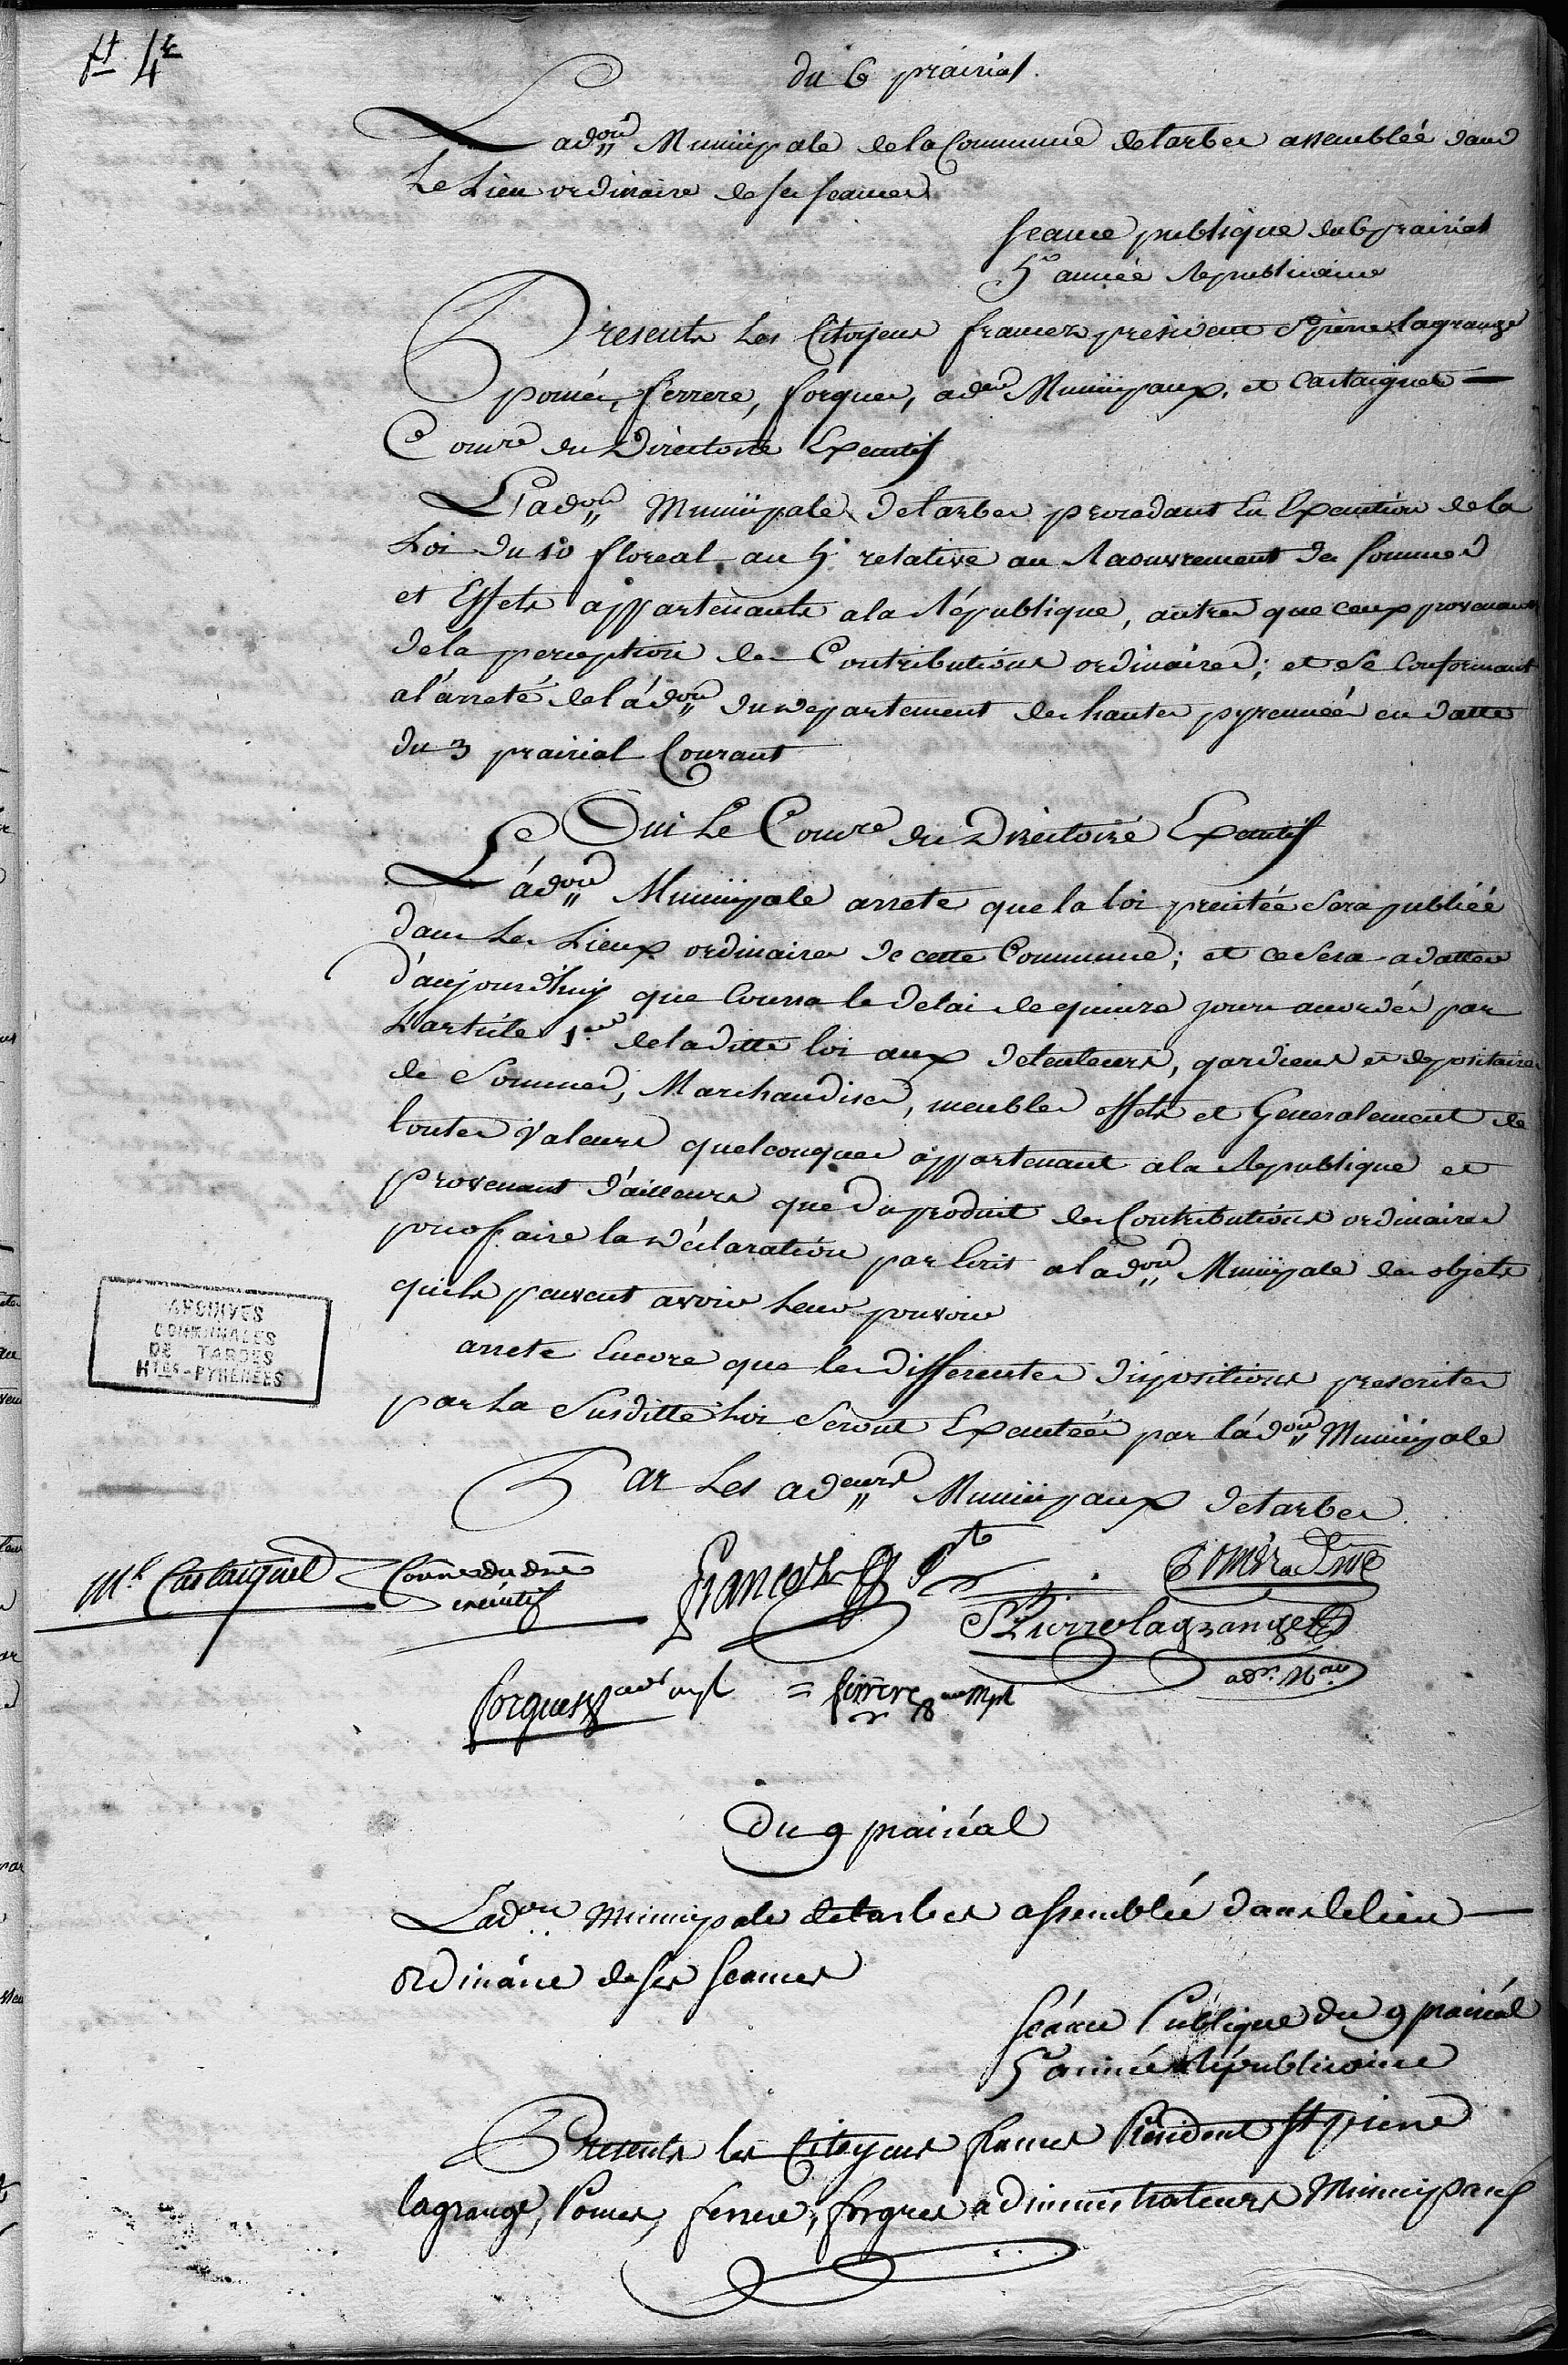 ft. 4e
du 6 prairial.
L'adon Municipale de la Commune de tarbes assemblée dans
Le Lieu ordinaire de ses seances
seance publique du 6 prairial
5e année Republicaine
Presents Les Citoyens francez president St pierre lagrange
pomés, ferrere, forgues, adeurs Municipaux, et Castaignet —
Comre du Directoire Executif
L'adon Municipale de tarbes procedant En Execution de la
Loi du 10 floreal an 5e relative au Recouvrement des sommes
et Effets appartenants a la République, autres que ceux provenans
de la perception des Contributions ordinaires; et se Conformant
a l'arreté de l'adon du departement des hautes pyrennées en datte
du 3 prairial Courant
Oui Le Comre du Directoire Executif
L'adon Municipale arrete que la loi precitée sera publiée
dans Les Lieux ordinaires de cette Commune; et ce sera a datter
d'aujourdhuy que Courra le delai de quinze jours accordés par
L'article 1er de la ditte loi aux detenteurs, gardiens et depositaires
de Sommes, Marchandises, meubles effets et Generalement de
toutes valeurs quelconques appartenant a la Republique et
provenant d'ailleurs que du produit des Contributions ordinaires
pour faire la déclaration par Ecrit a l'adon Municipale des objets
quils peuvent avoir Leur pouvoir
arrete Encore que les differentes dispositions prescrites
par La Susditte Loi seront Executées par l'adon Municipale
Par Les adeurs Municipaux de tarbes.
ARCHIVES
COMMUNALES
DE TARBES
Htes-PYRENEES
Ml Castaignet Comre du dre
executif
francez Pt
Pomés adm
St Pierre lagrange
adr. Mal
forgues adr mpl = ferrere adr mpl
Du 9 prairéal
L'adon Municipale de tarbes assemblée dans le lieu —
ordinaire de ses seances
séance Publique du 9 prairéal
5e année Républicaine
Presents les Citoyens frances Président St pierre
lagrange, Pomes, ferrere, forgues administrateurs Municipaux